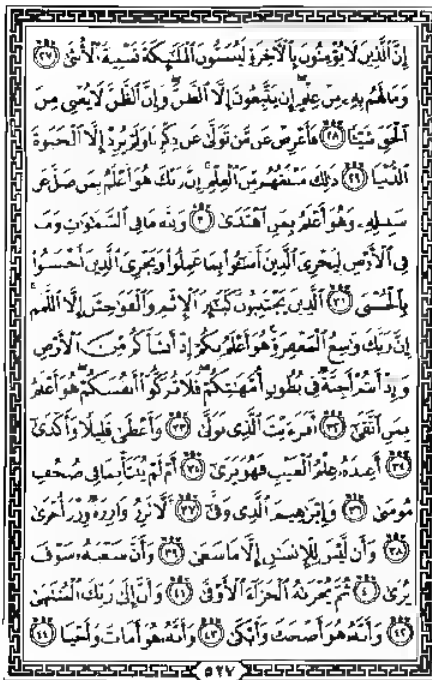 إِنَّ ٱلَّذِينَ لَا يُؤْمِنُونَ بِٱلْآخِرَةِ لَيُسَمُّونَ ٱلْمَلَٰٓئِكَةَ تَسْمِيَةَ ٱلْأُنثَىٰ ٢٧
وَمَا لَهُم بِهِۦ مِنْ عِلْمٍ إِن يَتَّبِعُونَ إِلَّا ٱلظَّنَّ وَإِنَّ ٱلظَّنَّ لَا يُغْنِى مِنَ
ٱلْحَقِّ شَيْـًٔا ٢٨ فَأَعْرِضْ عَن مَّن تَوَلَّىٰ عَن ذِكْرِنَا وَلَمْ يُرِدْ إِلَّا ٱلْحَيَوٰةَ
ٱلدُّنْيَا ٢٩ ذَٰلِكَ مَبْلَغُهُم مِّنَ ٱلْعِلْمِ إِنَّ رَبَّكَ هُوَ أَعْلَمُ بِمَن ضَلَّ عَن
سَبِيلِهِۦ وَهُوَ أَعْلَمُ بِمَنِ ٱهْتَدَىٰ ٣٠ وَلِلَّهِ مَا فِى ٱلسَّمَٰوَٰتِ وَمَا
فِى ٱلْأَرْضِ لِيَجْزِىَ ٱلَّذِينَ أَسَٰٓـُٔوا۟ بِمَا عَمِلُوا۟ وَيَجْزِىَ ٱلَّذِينَ أَحْسَنُوا۟
بِٱلْحُسْنَى ٣١ ٱلَّذِينَ يَجْتَنِبُونَ كَبَٰٓئِرَ ٱلْإِثْمِ وَٱلْفَوَٰحِشَ إِلَّا ٱللَّمَمَ
إِنَّ رَبَّكَ وَٰسِعُ ٱلْمَغْفِرَةِ هُوَ أَعْلَمُ بِكُمْ إِذْ أَنشَأَكُم مِّنَ ٱلْأَرْضِ
وَإِذْ أَنتُمْ أَجِنَّةٌ فِى بُطُونِ أُمَّهَٰتِكُمْ فَلَا تُزَكُّوٓا۟ أَنفُسَكُمْ هُوَ أَعْلَمُ
بِمَنِ ٱتَّقَىٰٓ ٣٢ أَفَرَءَيْتَ ٱلَّذِى تَوَلَّىٰ ٣٣ وَأَعْطَىٰ قَلِيلًا وَأَكْدَىٰٓ
٣٤ أَعِندَهُۥ عِلْمُ ٱلْغَيْبِ فَهُوَ يَرَىٰٓ ٣٥ أَمْ لَمْ يُنَبَّأْ بِمَا فِى صُحُفِ
مُوسَىٰ ٣٦ وَإِبْرَٰهِيمَ ٱلَّذِى وَفَّىٰٓ ٣٧ أَلَّا تَزِرُ وَازِرَةٌ وِزْرَ أُخْرَىٰ
٣٨ وَأَن لَّيْسَ لِلْإِنسَٰنِ إِلَّا مَا سَعَىٰ ٣٩ وَأَنَّ سَعْيَهُۥ سَوْفَ
يُرَىٰ ٤٠ ثُمَّ يُجْزَىٰهُ ٱلْجَزَآءَ ٱلْأَوْفَىٰ ٤١ وَأَنَّ إِلَىٰ رَبِّكَ ٱلْمُنتَهَىٰ
٤٢ وَأَنَّهُۥ هُوَ أَضْحَكَ وَأَبْكَىٰ ٤٣ وَأَنَّهُۥ هُوَ أَمَاتَ وَأَحْيَا ٤٤
٥٢٧